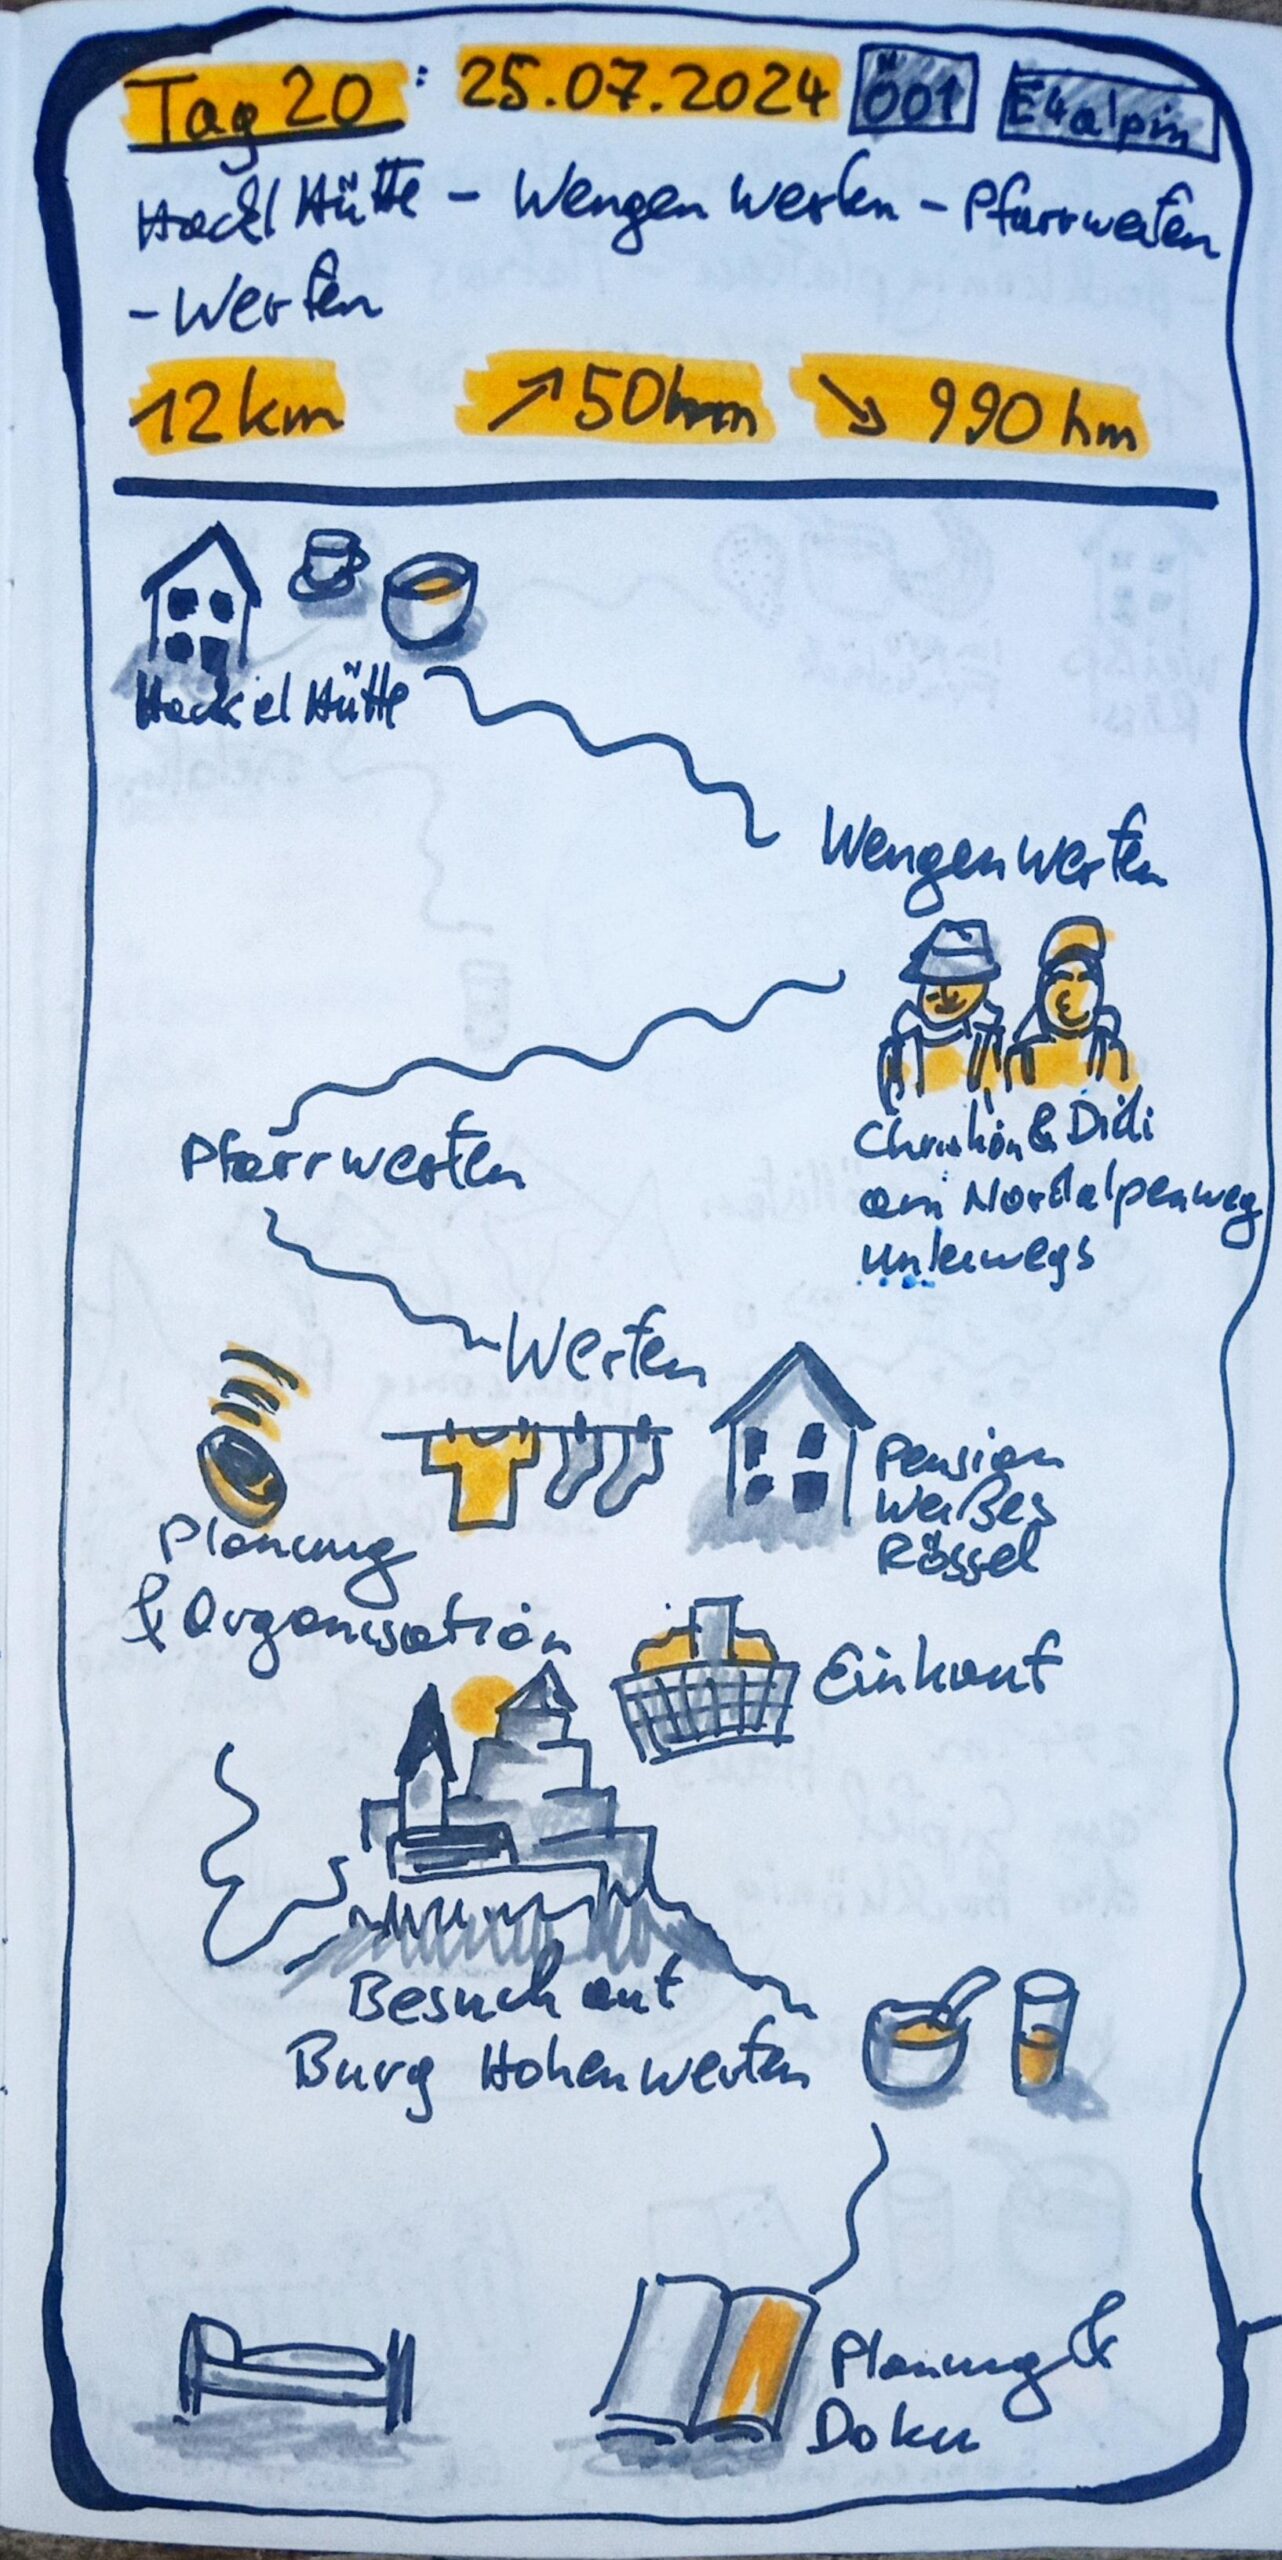 Tag 20: 25.07.2024 Ö01 E4alpin
Hackl Hütte - Wengen Werfen - Pfarrwerfen
- Werfen
12km ↗ 50hm ↘ 990 hm
Hackel Hütte
Wengen Werfen
Christian & Didi
am Nordalpenweg
unterwegs
Pfarrwerfen
Werfen
Pension
Weißes
Rössel
Planung
& Organisation
Einkauf
Besuch auf
Burg Hohenwerfen
Planung &
Doku